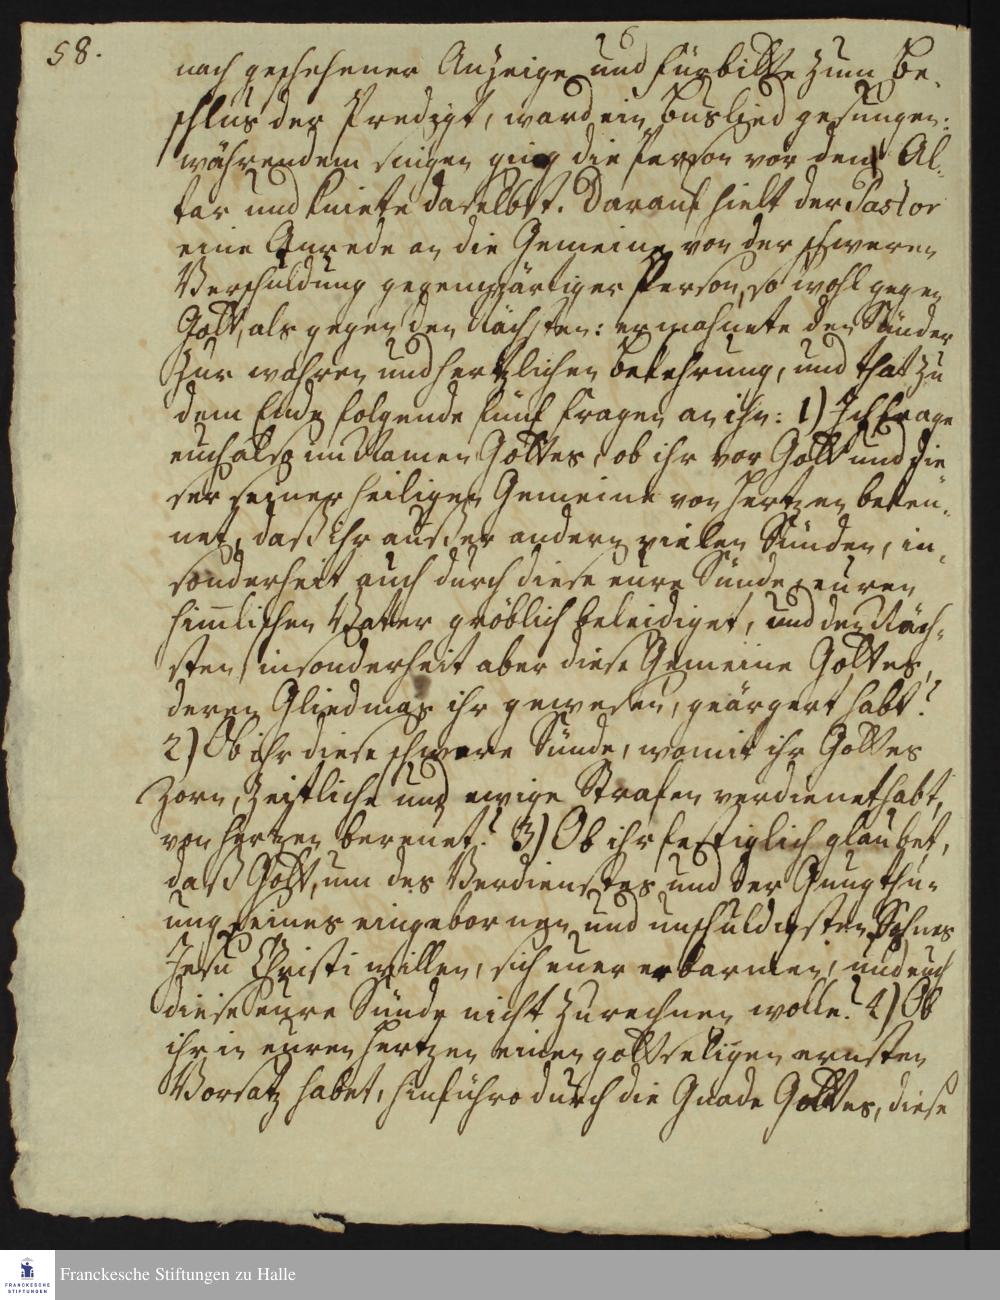 58.
nach geschehener Anzeige und Fürbitte zum Be-
schlus der Predigt, ward ein Buslied gesungen:
währendem singen ging die Person vor den Al-
tar und kniete daselbst. Darauf hielt der Pastor
eine Anrede an die Gemeine von der schweren
Verschuldung gegenwärtiger Person, so wohl gegen
Gott, als gegen den Nächsten: ermahnete den Sünder
zur wahren und hertzlichen Bekehrung, und that zu
dem Ende folgende fünf Fragen an ihn: 1) Ich frage
euch also im Namen Gottes, ob ihr vor Gott und die-
ser seiner heiligen Gemeine von Hertzen beken-
net, daß ihr außer andern vielen Sünden, in-
sonderheit auch durch diese eure Sünde euren
him̅lischen Vatter gröblich beleidiget, und den Näch-
sten, insonderheit aber diese Gemeine Gottes,
deren Gliedmas ihr gewesen, geärgert habt?
2) Ob ihr diese schwere Sünde, womit ihr Gottes
Zorn, zeitliche und ewige Strafen verdienet habt,
von Hertzen bereuet? 3) Ob ihr festiglich glaubet,
daß Gott, um des Verdienstes und der Gnugthu-
ung seines eingebornen und unschuldigsten Sohnes
Jesu Christi willen, sich euer erbarmen, und euch
diese eure Sünde nicht zurechnen wolle? 4) Ob
ihr in euren Hertzen einen gottseligen ernsten
Vorsatz habet, hinführo durch die Gnade Gottes, diese
FRANCKESCHE
STIFTUNGEN
Franckesche Stiftungen zu Halle